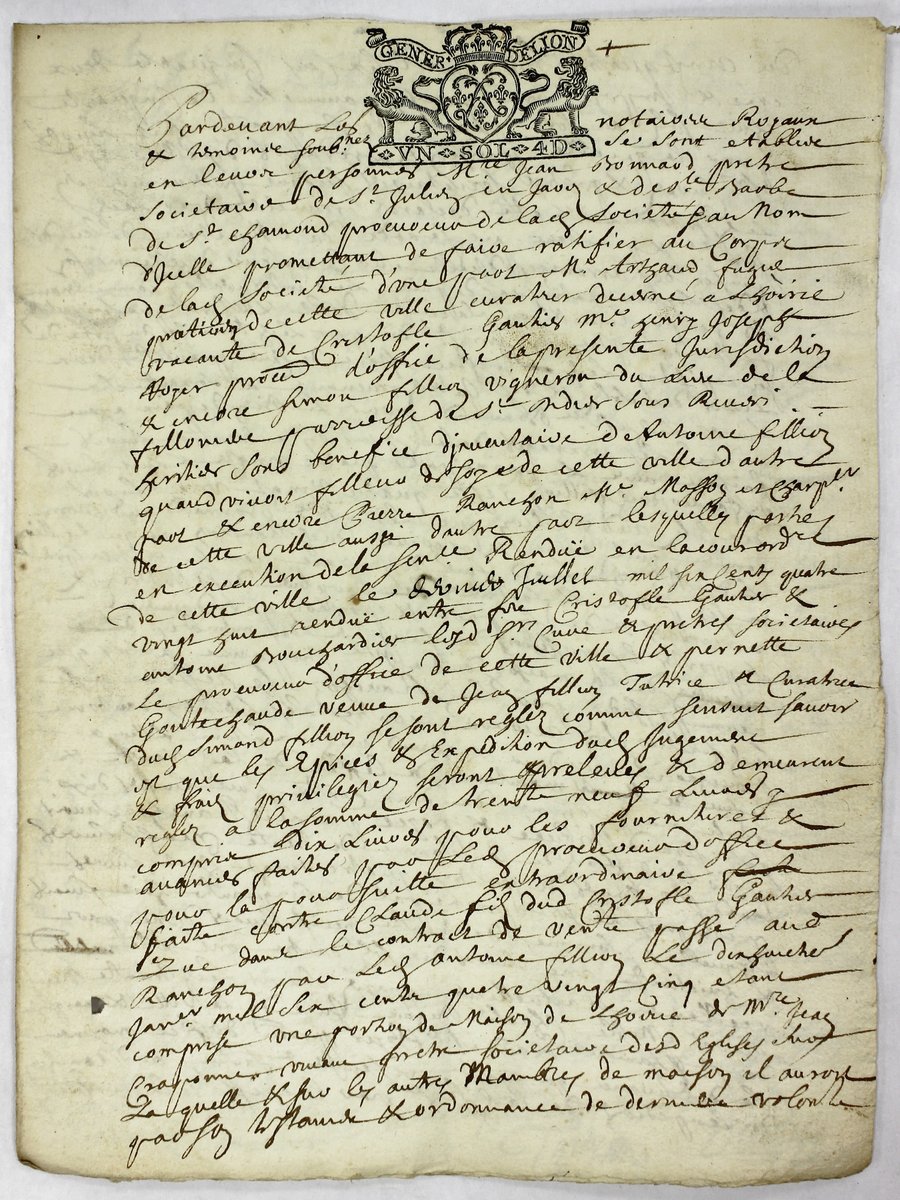 GENER. DELION
VN · SOL · 4D ·
Pardevant Les notaires Royaux
& temoins soub.nez se sont etablis
en leurs personnes Mre Jean Bonnard pretre
societaire de St Julien en Jarez & de Ste Barbe
de St chamond procureur de lad Société & au Nom
d'Jcelle promettant de faire ratifier au Corps
de lad Société d'une part Me Arthaud
praticien de cette ville curateur decerné a Lhoirie
vacante de Cristofle Gautier Me henry Joseph
procur d'office de la presente Jurisdiction
& encore simon fillion vigneron du Lieu de la
parroisse de St Didier Sous Riveri
heritier sous benefice d'inventaire d'Antoine fillion
quand vivoit filleur de soye de cette ville d'autre
part & encore Pierre Ranchon Me Masson et Charp.r
de cette ville aussi d'autre part lesquelles parties
en execution de la sence Rendüe en la cour ord.re
de cette ville le Juillet mil six cents quatre
vingt huit rendüe entre feu Cristofle Gautier &
antoine Bouchardier lesd Srs Curé & pretres societaires
Le procureur d'office de cette ville & pernette
veuve de Jean fillion Tutrice & Curatrice
dud Simond fillion se sont reglez comme sensuit savoir
est que les Epices & Expedition dud Jugement
& frais privilegiez seront prelevés & demeurent
reglez a la somme de trente neuf Livres y
compris dix Livres pour les fournitures &
avances faites par Led procureur d'office
pour la poursuitte extraordinaire
faite contre Claude fils dud Cristofle Gautier
Que dans le contract de vente passé aud
Ranchon par Led antoine fillion Le dixhuict
Janer mil six cents quatre vingt cinq etant
comprise une portion de Maison de Lhoirie de Mre Jean
Craponne vivant pretre societaire desd Eglises sur
La quelle & sur les autres Mambres de maison il auroit
par son testament & ordonnance de derniere volonté